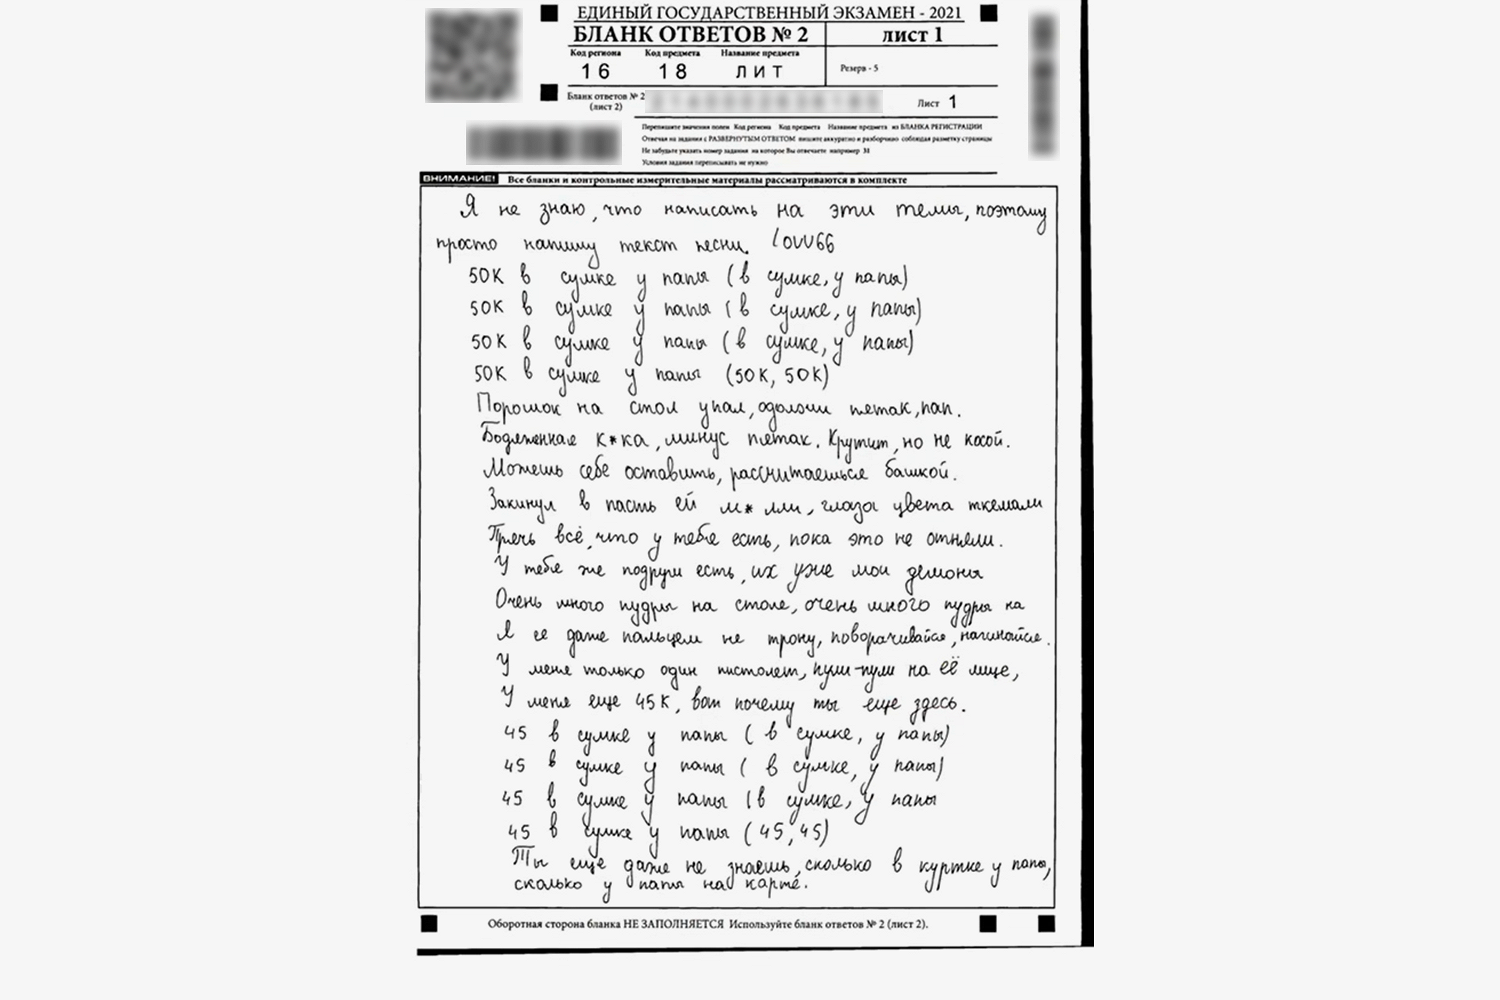 ЕДИНЫЙ ГОСУДАРСТВЕННЫЙ ЭКЗАМЕН - 2021
БЛАНК ОТВЕТОВ № 2
лист 1
Код региона Код предмета Название предмета
16 18 ЛИТ
Резерв - 5
Бланк ответов № 2
(лист 2)
Лист 1
Перепишите значения полей Код региона Код предмета Название предмета из БЛАНКА РЕГИСТРАЦИИ
Отвечая на задания с РАЗВЕРНУТЫМ ОТВЕТОМ пишите аккуратно и разборчиво соблюдая разметку страницы
Не забудьте указать номер задания на которое Вы отвечаете например 31
Условия задания переписывать не нужно
ВНИМАНИЕ! Все бланки и контрольные измерительные материалы рассматриваются в комплекте
Я не знаю, что написать на эти темы, поэтому
просто напишу текст песни. lovv66
50К в сумке у папы (в сумке, у папы)
50К в сумке у папы (в сумке, у папы)
50К в сумке у папы (в сумке, у папы)
50К в сумке у папы (50К, 50К)
Порошок на стол упал, одолжи петак, пап.
Бодяженная к*ка, минус пятак. Крутит, но не косой.
Можешь себе оставить, рассчитаешься башкой.
Закинул в пасть ей м*лли, глаза цвета ткемали
Прячь всё, что у тебя есть, пока это не отняли.
У тебя же подруги есть, их уже мои демоны
Очень много пудры на столе, очень много пудры на
Я ее даже пальцем не трону, поворачивайся, нагинайся.
У меня только один пистолет, пуш-пули на её лице,
У меня еще 45К, вот почему ты еще здесь.
45 в сумке у папы ( в сумке, у папы)
45 в сумке у папы ( в сумке, у папы)
45 в сумке у папы (в сумке, у папы
45 в сумке у папы (45, 45)
Ты еще даже не знаешь, сколько в куртке у папы,
сколько у папы на карте.
Оборотная сторона бланка НЕ ЗАПОЛНЯЕТСЯ Используйте бланк ответов № 2 (лист 2).